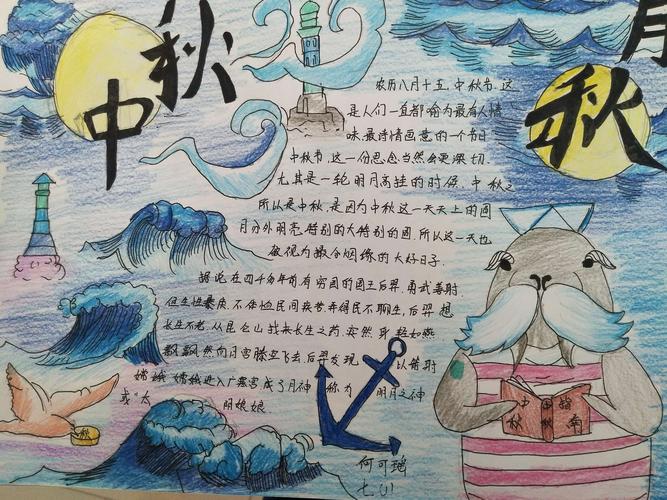 中秋
月
秋
农历八月十五,中秋节,这
是人们一直都喻为最有人情
味,最诗情画意的一个节日
中秋节,这一份思念当然会更深切,
尤其是一轮明月高挂的时候,中秋之
所以是中秋,是因为中秋这一天天上的圆
月分外明亮特别的大特别的圆,所以这一天也
被视为撮合姻缘的大好日子.
据说在四千多年前有穷国的国王后羿,勇武善射,
但生性暴虐,不体恤民间疾苦弄得民不聊生,后羿想
长生不老,从昆仑山找来长生之药,突然,身轻如燕
飘飘然向月宫腾空飞去后羿发现 以箭射
嫦娥,嫦娥进入广寒宫成了月神 称为 明月之神
或"太 阴娘娘.
中秋
中国指
秋秋南
何可瑶
七(1)